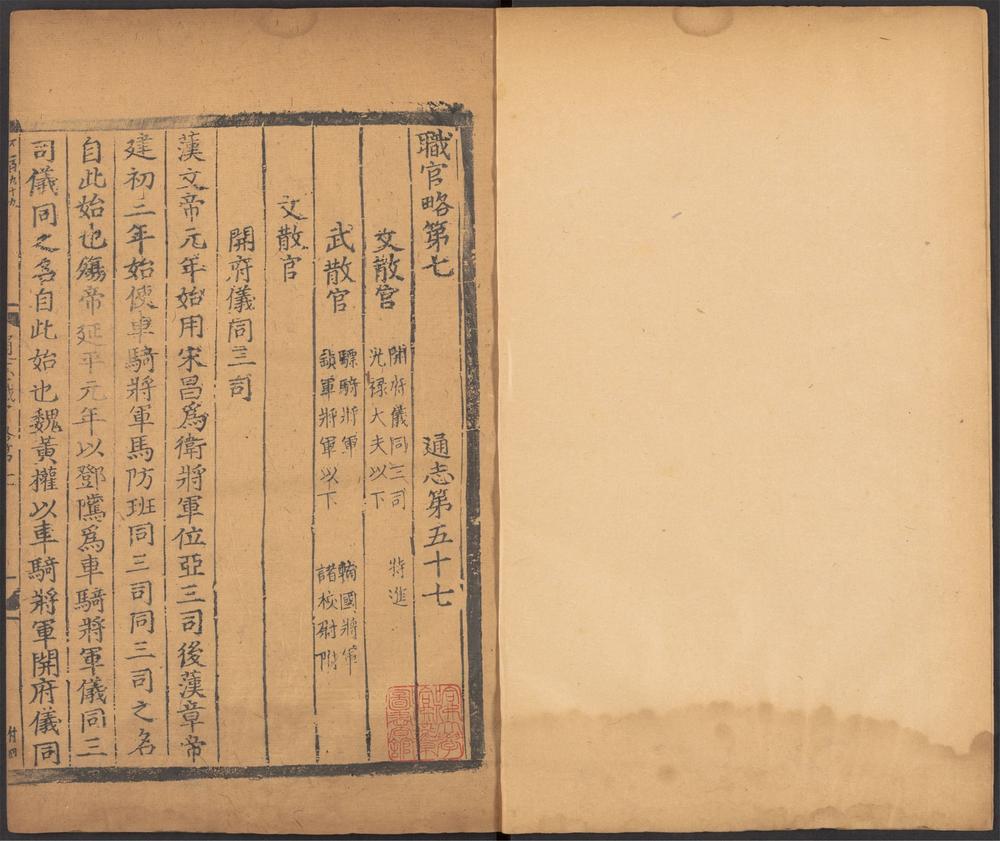 職官略第七 通志第五十七
文散官 開府儀同三司 特進
光禄大夫以下
武散官 驃騎將軍 輔國將軍
鎮軍將軍以下 諸校尉附
文散官
開府儀同三司
漢文帝元年始用宋昌爲衛將軍位亞三司後漢章帝
建初三年始使車騎將軍馬防班同三司同三司之名
自此始也殤帝延平元年以鄧隲爲車騎將軍儀同三
司儀同之名自此始也魏黃權以車騎將軍開府儀同